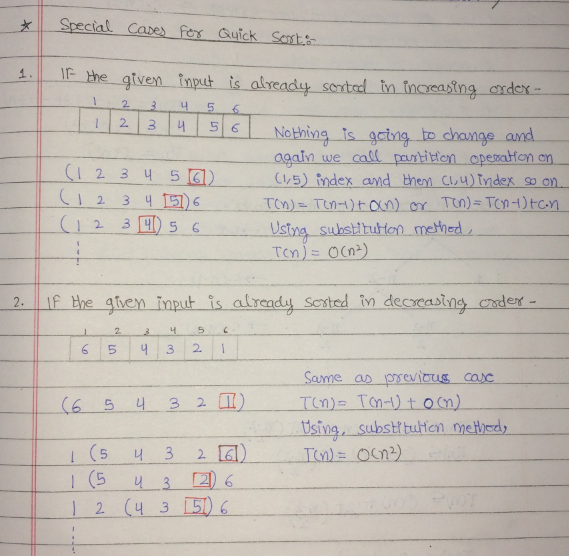 * Special Cases For Quick Sort:-
1. IF the given input is already sorted in increasing order-
1 2 3 4 5 6
1 2 3 4 5 6
Nothing is going to change and
again we call partition operation on
(1 2 3 4 5 6)
(1,5) index and then (1,4) index so on.
(1 2 3 4 5) 6
T(n) = T(n-1) + O(n) or T(n) = T(n-1) + c.n
(1 2 3 4) 5 6
Using substitution method,
T(n) = O(n²)
2. IF the given input is already sorted in decreasing order-
1 2 3 4 5 6
6 5 4 3 2 1
Same as previous case
(6 5 4 3 2 1)
T(n) = T(n-1) + O(n)
Using, substitution method,
1 (5 4 3 2 6)
T(n) = O(n²)
1 (5 4 3 2) 6
1 2 (4 3 5) 6